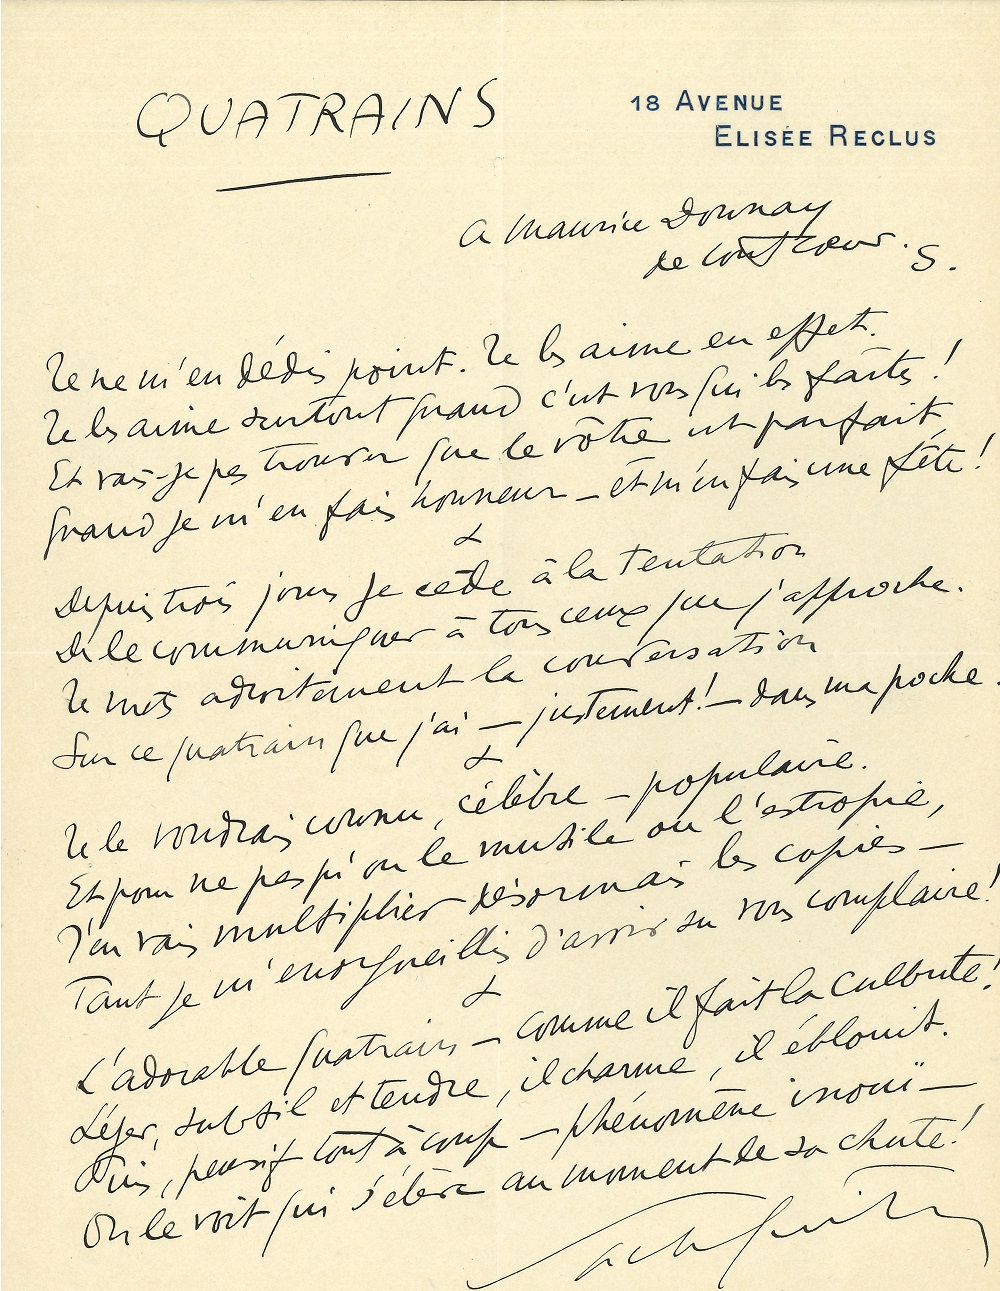 QUATRAINS
18 AVENUE
ELISÉE RECLUS
a Maurice Donnay
de tout cœur. S.
Je ne m'en dédis point. Je les aime en effet.
Je les aime surtout quand c'est vous qui les faites!
Et vais-je pas trouver que le vôtre est parfait,
Quand je m'en fais honneur – et m'en fais une fête!
Depuis trois jours je cède à la tentation
De le communiquer à tous ceux que j'approche.
Je mets adroitement la conversation
Sur ce quatrain que j'ai – justement! – dans ma poche.
Je le voudrais connu, célèbre – populaire.
Et pour ne pas qu'on le mutile ou l'estropie,
J'en vais multiplier désormais les copies –
Tant je m'enorgueillis d'avoir su vous complaire!
L'adorable quatrain – comme il fait la culbute!
Léger, subtil et tendre, il charme, il éblouit.
Puis, pensif tout à coup – phénomène inouï –
On le voit qui s'élève au moment de sa chute!
Sacha Guitry